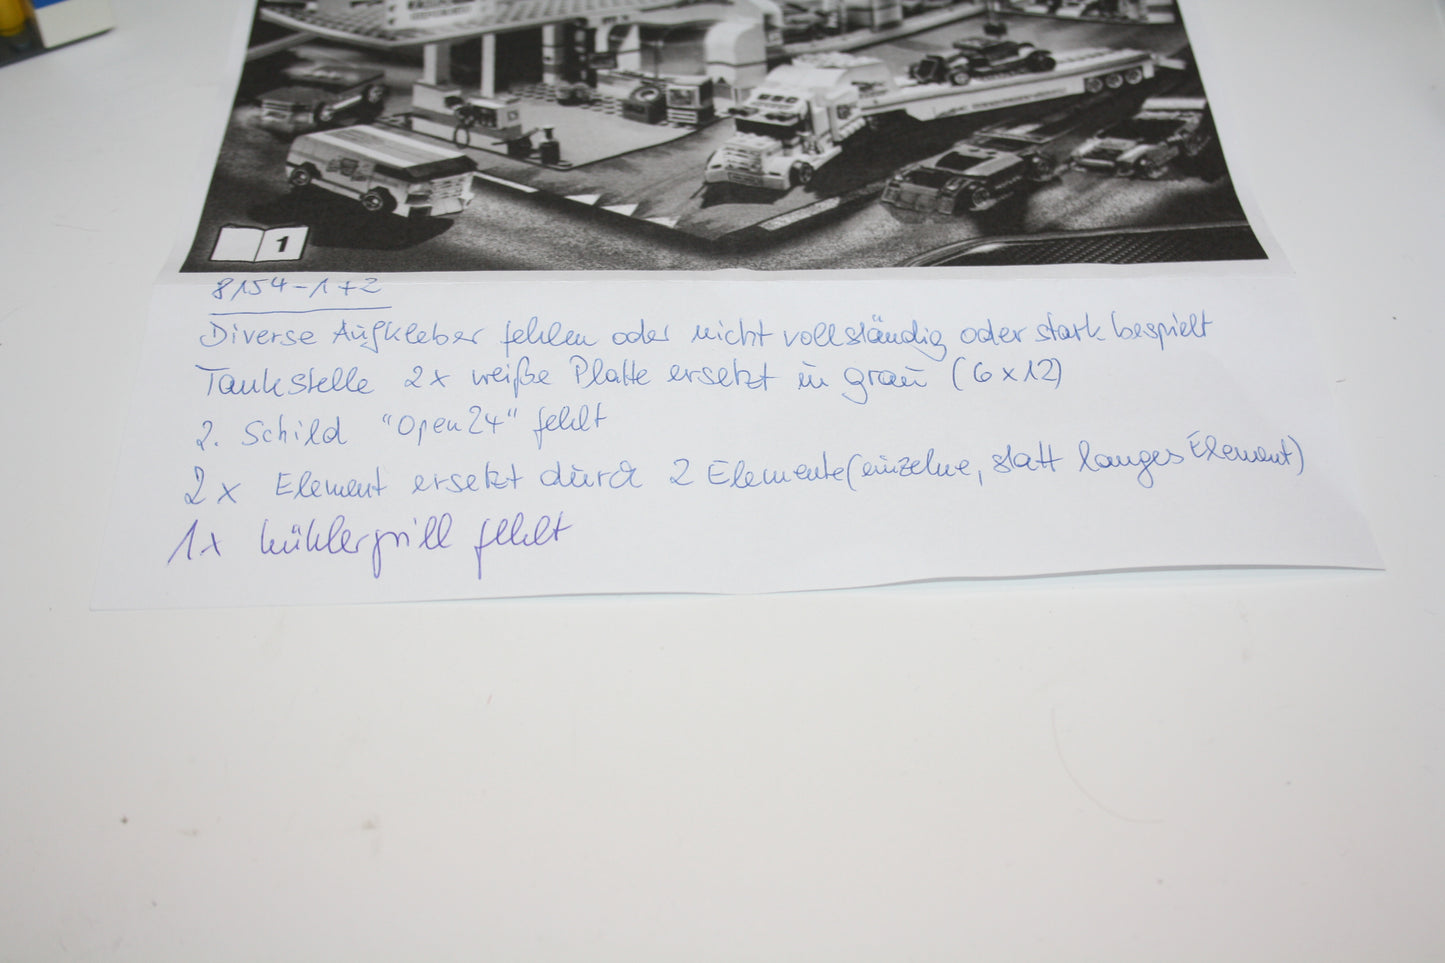 1
8154-1+2
Diverse Aufkleber fehlen oder nicht vollständig oder stark bespielt
Tankstelle 2x weiße Platte ersetzt in grau (6x12)
2. Schild "Open24" fehlt
2x Element ersetzt durch 2 Elemente (einzelne, statt langes Element)
1x Kühlergrill fehlt